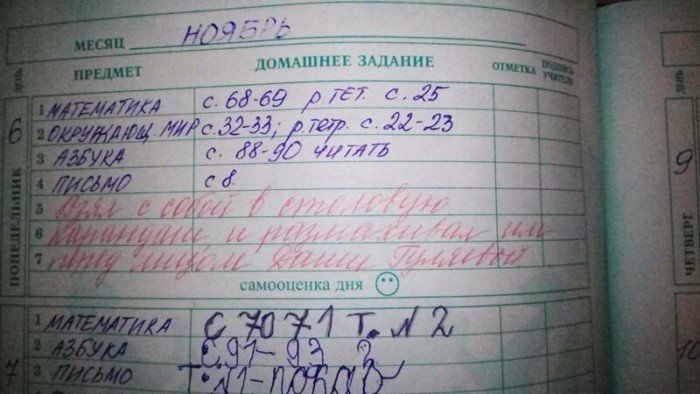 МЕСЯЦ НОЯБРЬ
ДЕНЬ ПРЕДМЕТ ДОМАШНЕЕ ЗАДАНИЕ ОТМЕТКА ПОДПИСЬ УЧИТЕЛЯ ДЕНЬ
6 ПОНЕДЕЛЬНИК
1 МАТЕМАТИКА с. 68-69 р.тет. с. 25
2 ОКРУЖАЮЩ. МИР с.32-33; р.тетр. с. 22-23
3 АЗБУКА с. 88-90 читать
4 ПИСЬМО с 8.
5 Взял с собой в столовую
6 карандаш и размахивал им
7 перед лицом Даши Гуляевой
самооценка дня
9 ЧЕТВЕРГ
7
1 МАТЕМАТИКА С 70 71 Т. N 2
2 АЗБУКА С.91-93
3 ПИСЬМО Т. N1-
10